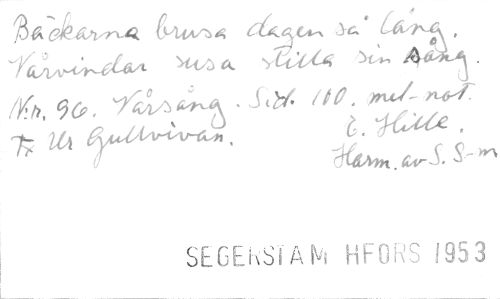 Bäckarna brusa dagen så lång.
Vårvindar susa stilla sin sång.
N:r. 96. Vårsång. Sid. 100. mel-not.
Tx Ur Gullvivan. E. Hille.
Harm. av S. S-m
SEGERSTAM HFORS 1953